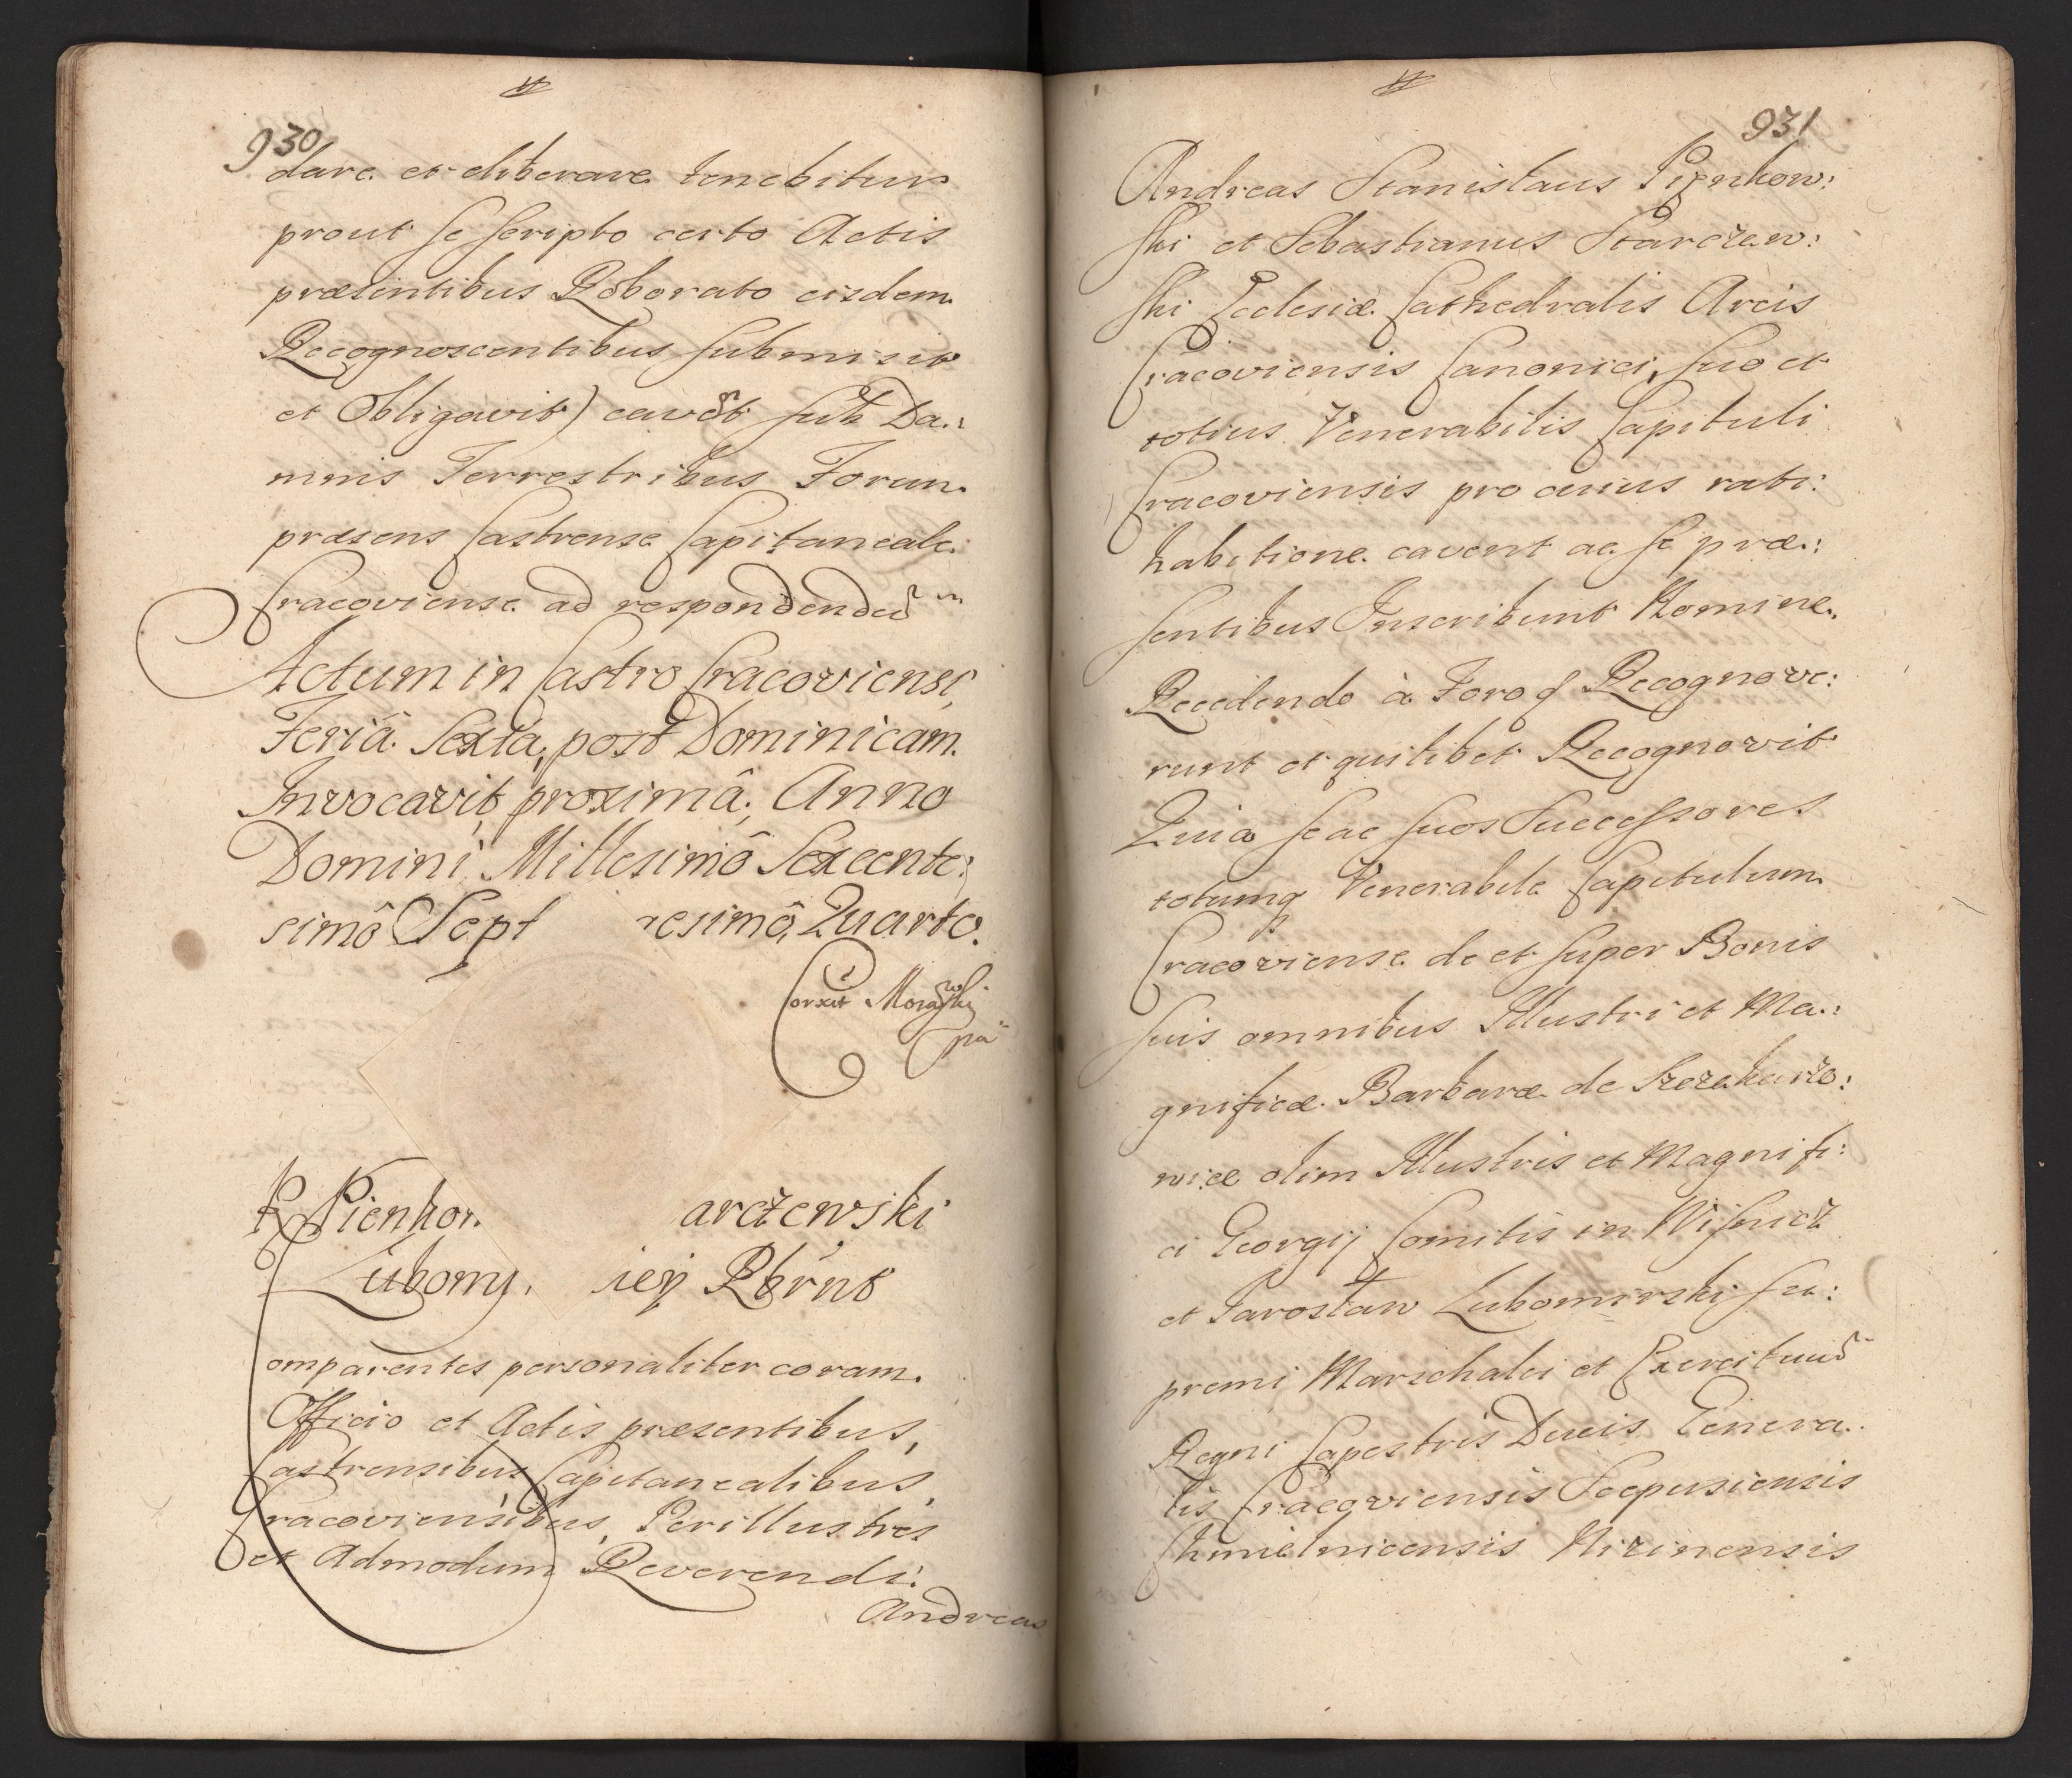 930
dare et eliberare tenebitur
prout se scripto certo Actis
præsentibus Roborato eisdem
Recognoscentibus submisit
et Obligavit) cavet sub Da:
mnis Terrestribus Forum
præsens Castrense Capitaneale
Cracoviense ad respondendũ
Actum in Castro Cracoviensi
Feriâ Sexta, post Dominicam
Invocavit, proximâ, Anno
Domini Millesimô Sexcente:
simô Sept esimô, Quarto.
Corxit Morawski
P Pienko arczewski
Lubomy iey Rbrnt
omparentes personaliter coram
Officio et Actis præsentibus,
Castrensibus Capitanealibus,
Cracoviensibus, Perillustres
et Admodum Reverendi
Andreas
931
Andreas Stanislaus Pięnkow:
ski et Sebastianus Starczew:
ski Ecclesiæ Cathedralis Arcis
Cracoviensis Canonici, suo et
totius Venerabilis Capituli
Cracoviensis pro cuius rati:
habitione cavent ac se præ:
sentibus Inscribunt Nomine
Recedendo à Foro Recognove:
runt et quilibet Recognovit
Quia se ac suos Successores
totumq Venerabile Capitulum
Cracoviense de et super Bonis
suis omnibus Illustri et Ma:
gnificæ Barbaræ de Szczekarzo:
wice olim Illustris et Magnifi:
ci Georgij Comitis in Wisnicz
et Jarosław Lubomirski Su:
premi Marschalci et Exercituũ
Regni Capestris Ducis Genera:
lis Cracoviensis Scepusiensis
Chmielnicensis Nizinensis